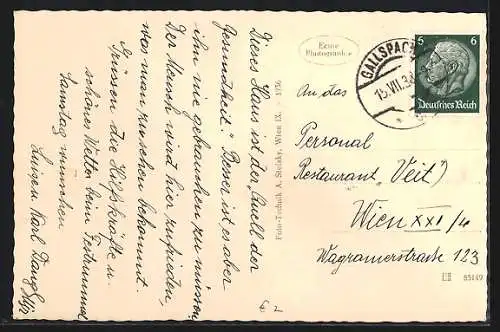 Dieses Haus ist der „Quell der
Gesundheit“. Besser ist es aber
ihn nie gebrauchen zu müssen.
Der Mensch wird hier zufrieden,
wo man zwischen bekommt.
Grüssen die Hilfskräfte u.
schönes Wetter beim Festrummel
Samstag wünschen
Luise u. Karl
Echte
Photographie
Foto-Technik A. Stefsky, Wien IX. - 1936
GALLSPACH
15.VII.38
6 6
Deutsches Reich
An das
Personal
Restaurant „Veit“
Wien XXI/4
Wagramerstraße 123
85149